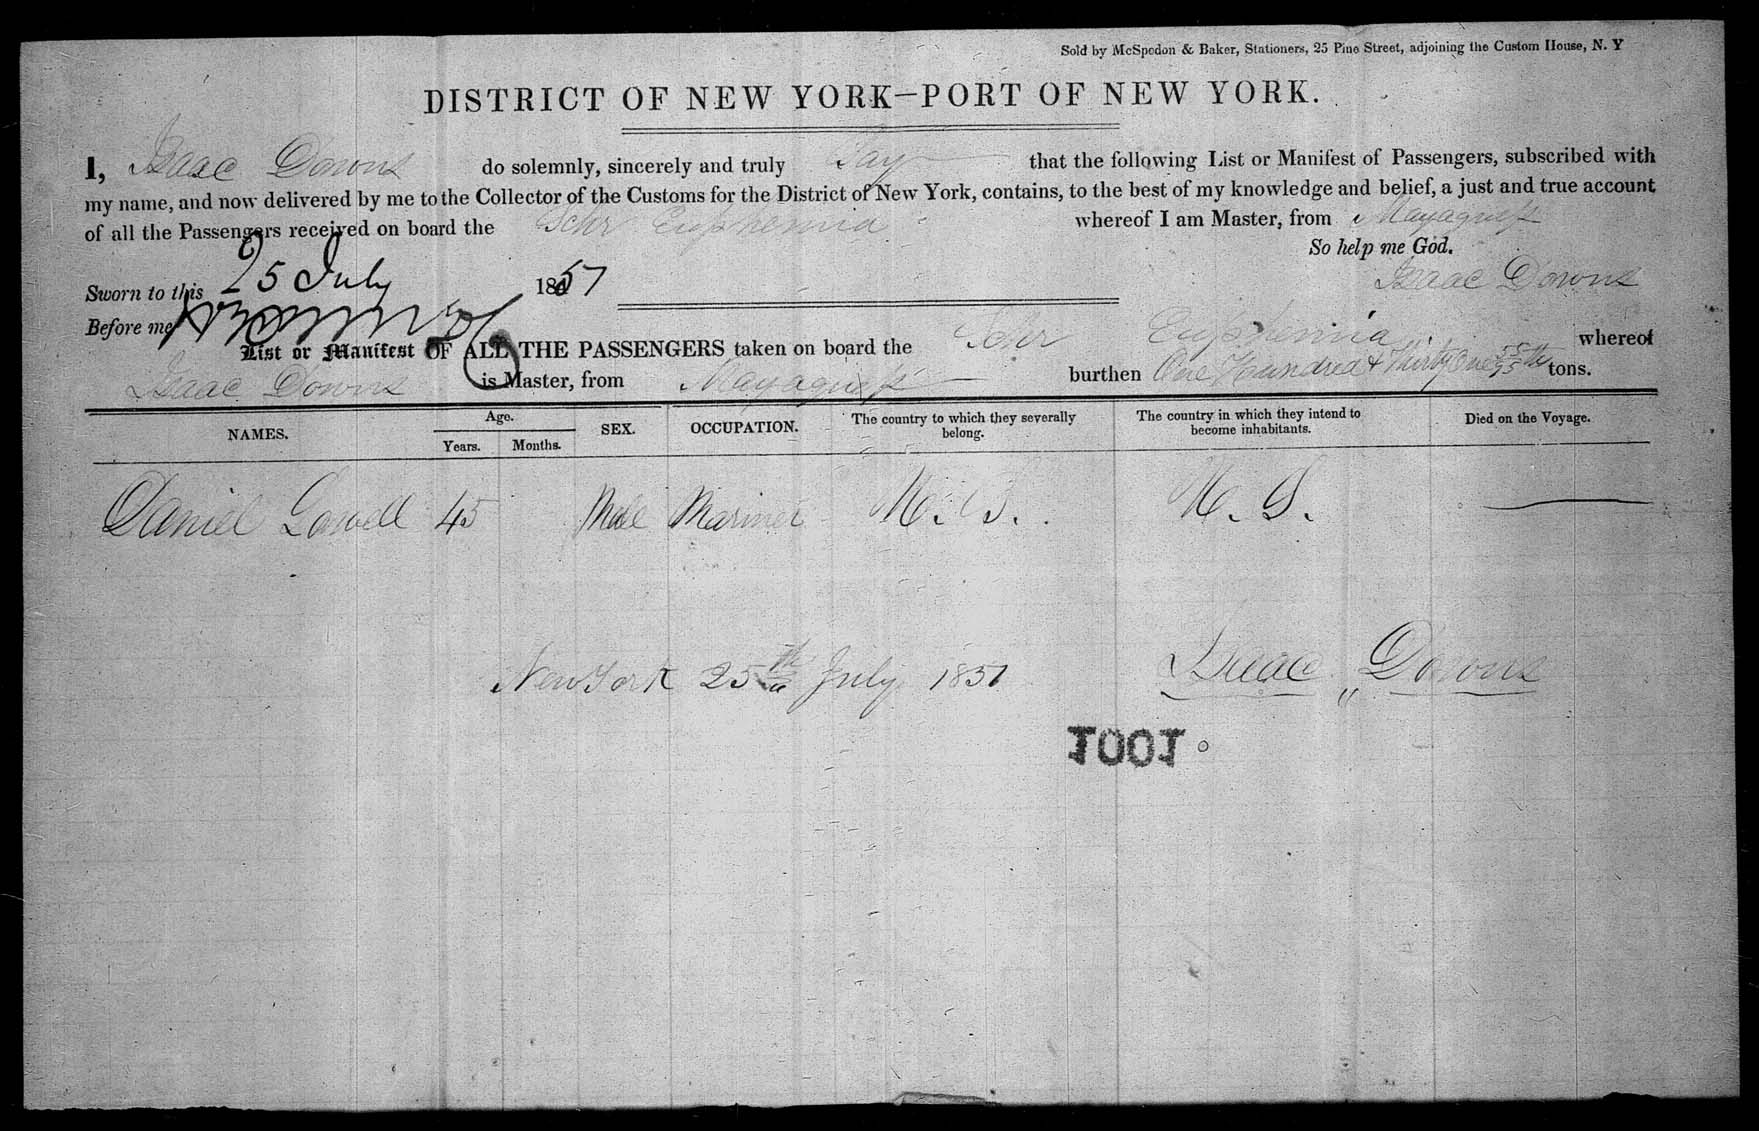 Sold by McSpedon & Baker, Stationers, 25 Pine Street, adjoining the Custom House, N. Y
DISTRICT OF NEW YORK—PORT OF NEW YORK.
I, Isaac Downs do solemnly, sincerely and truly Say that the following List or Manifest of Passengers, subscribed with
my name, and now delivered by me to the Collector of the Customs for the District of New York, contains, to the best of my knowledge and belief, a just and true account
of all the Passengers received on board the Schr Euphemia whereof I am Master, from Mayaguess
So help me God.
Sworn to this 25 July 1851
Isaac Downs
Before me
List or Manifest OF ALL THE PASSENGERS taken on board the Schr Euphemia whereof
Isaac Downs is Master, from Mayaguess burthen One Hundred & Thirty One 55/95th tons.
NAMES. Age. Years. Months. SEX. OCCUPATION. The country to which they severally belong. The country in which they intend to become inhabitants. Died on the Voyage.
Daniel Lowell 45 Male Mariner U. S. U. S.
New York 25th July 1851 Isaac Downs
1001